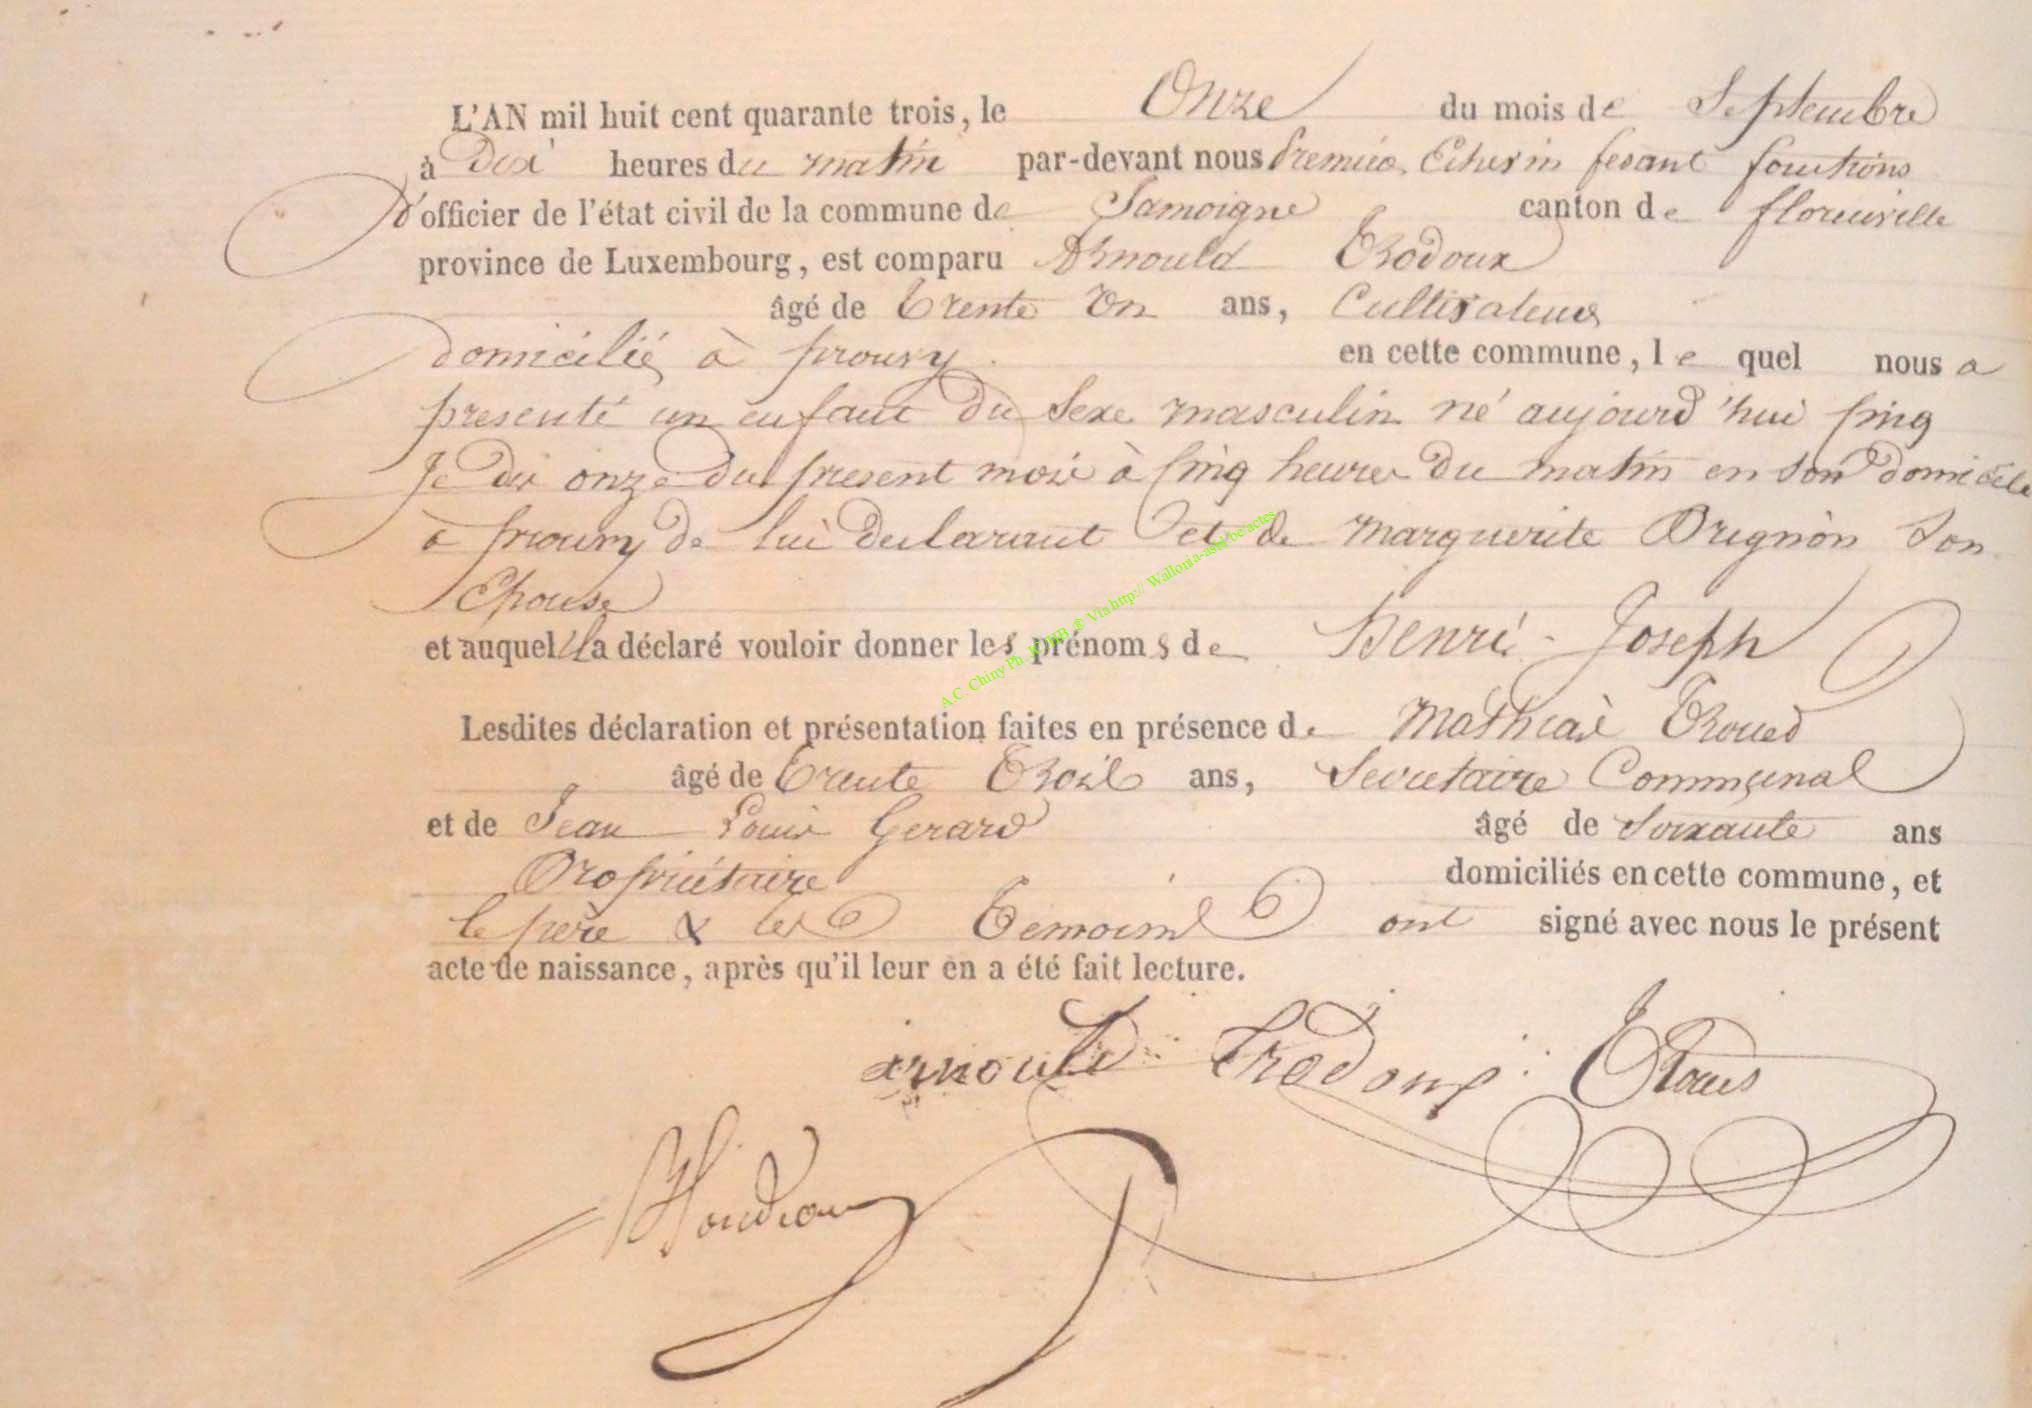 L'AN mil huit cent quarante trois, le Onze du mois de Septembre
à Dix heures du matin par-devant nous Premier Echevin fesant fonctions
d'officier de l'état civil de la commune de Jamoigne canton de florenville
province de Luxembourg, est comparu Arnould Trodoux
âgé de trente un ans, Cultivateur
domicilié à prouvy en cette commune, le quel nous a
presenté un enfant du Sexe masculin né aujourd'hui cinq
Je dis onze du present mois à cinq heures du matin en son domicile
à prouvy de lui declarant et de marguerite Orignon Son
Epouse
et auquel il a déclaré vouloir donner les prénoms de Henri-Joseph
Lesdites déclaration et présentation faites en présence de Mathias
âgé de trente trois ans, Secretaire Communal
et de Jean Louis Gerard âgé de Soixante ans
Propriétaire domiciliés en cette commune, et
le père & les Temoins ont signé avec nous le présent
acte de naissance, après qu'il leur en a été fait lecture.
arnould Trodoux
A.C. Chiny Ph. via http://Wallonia-asbl.be/actes